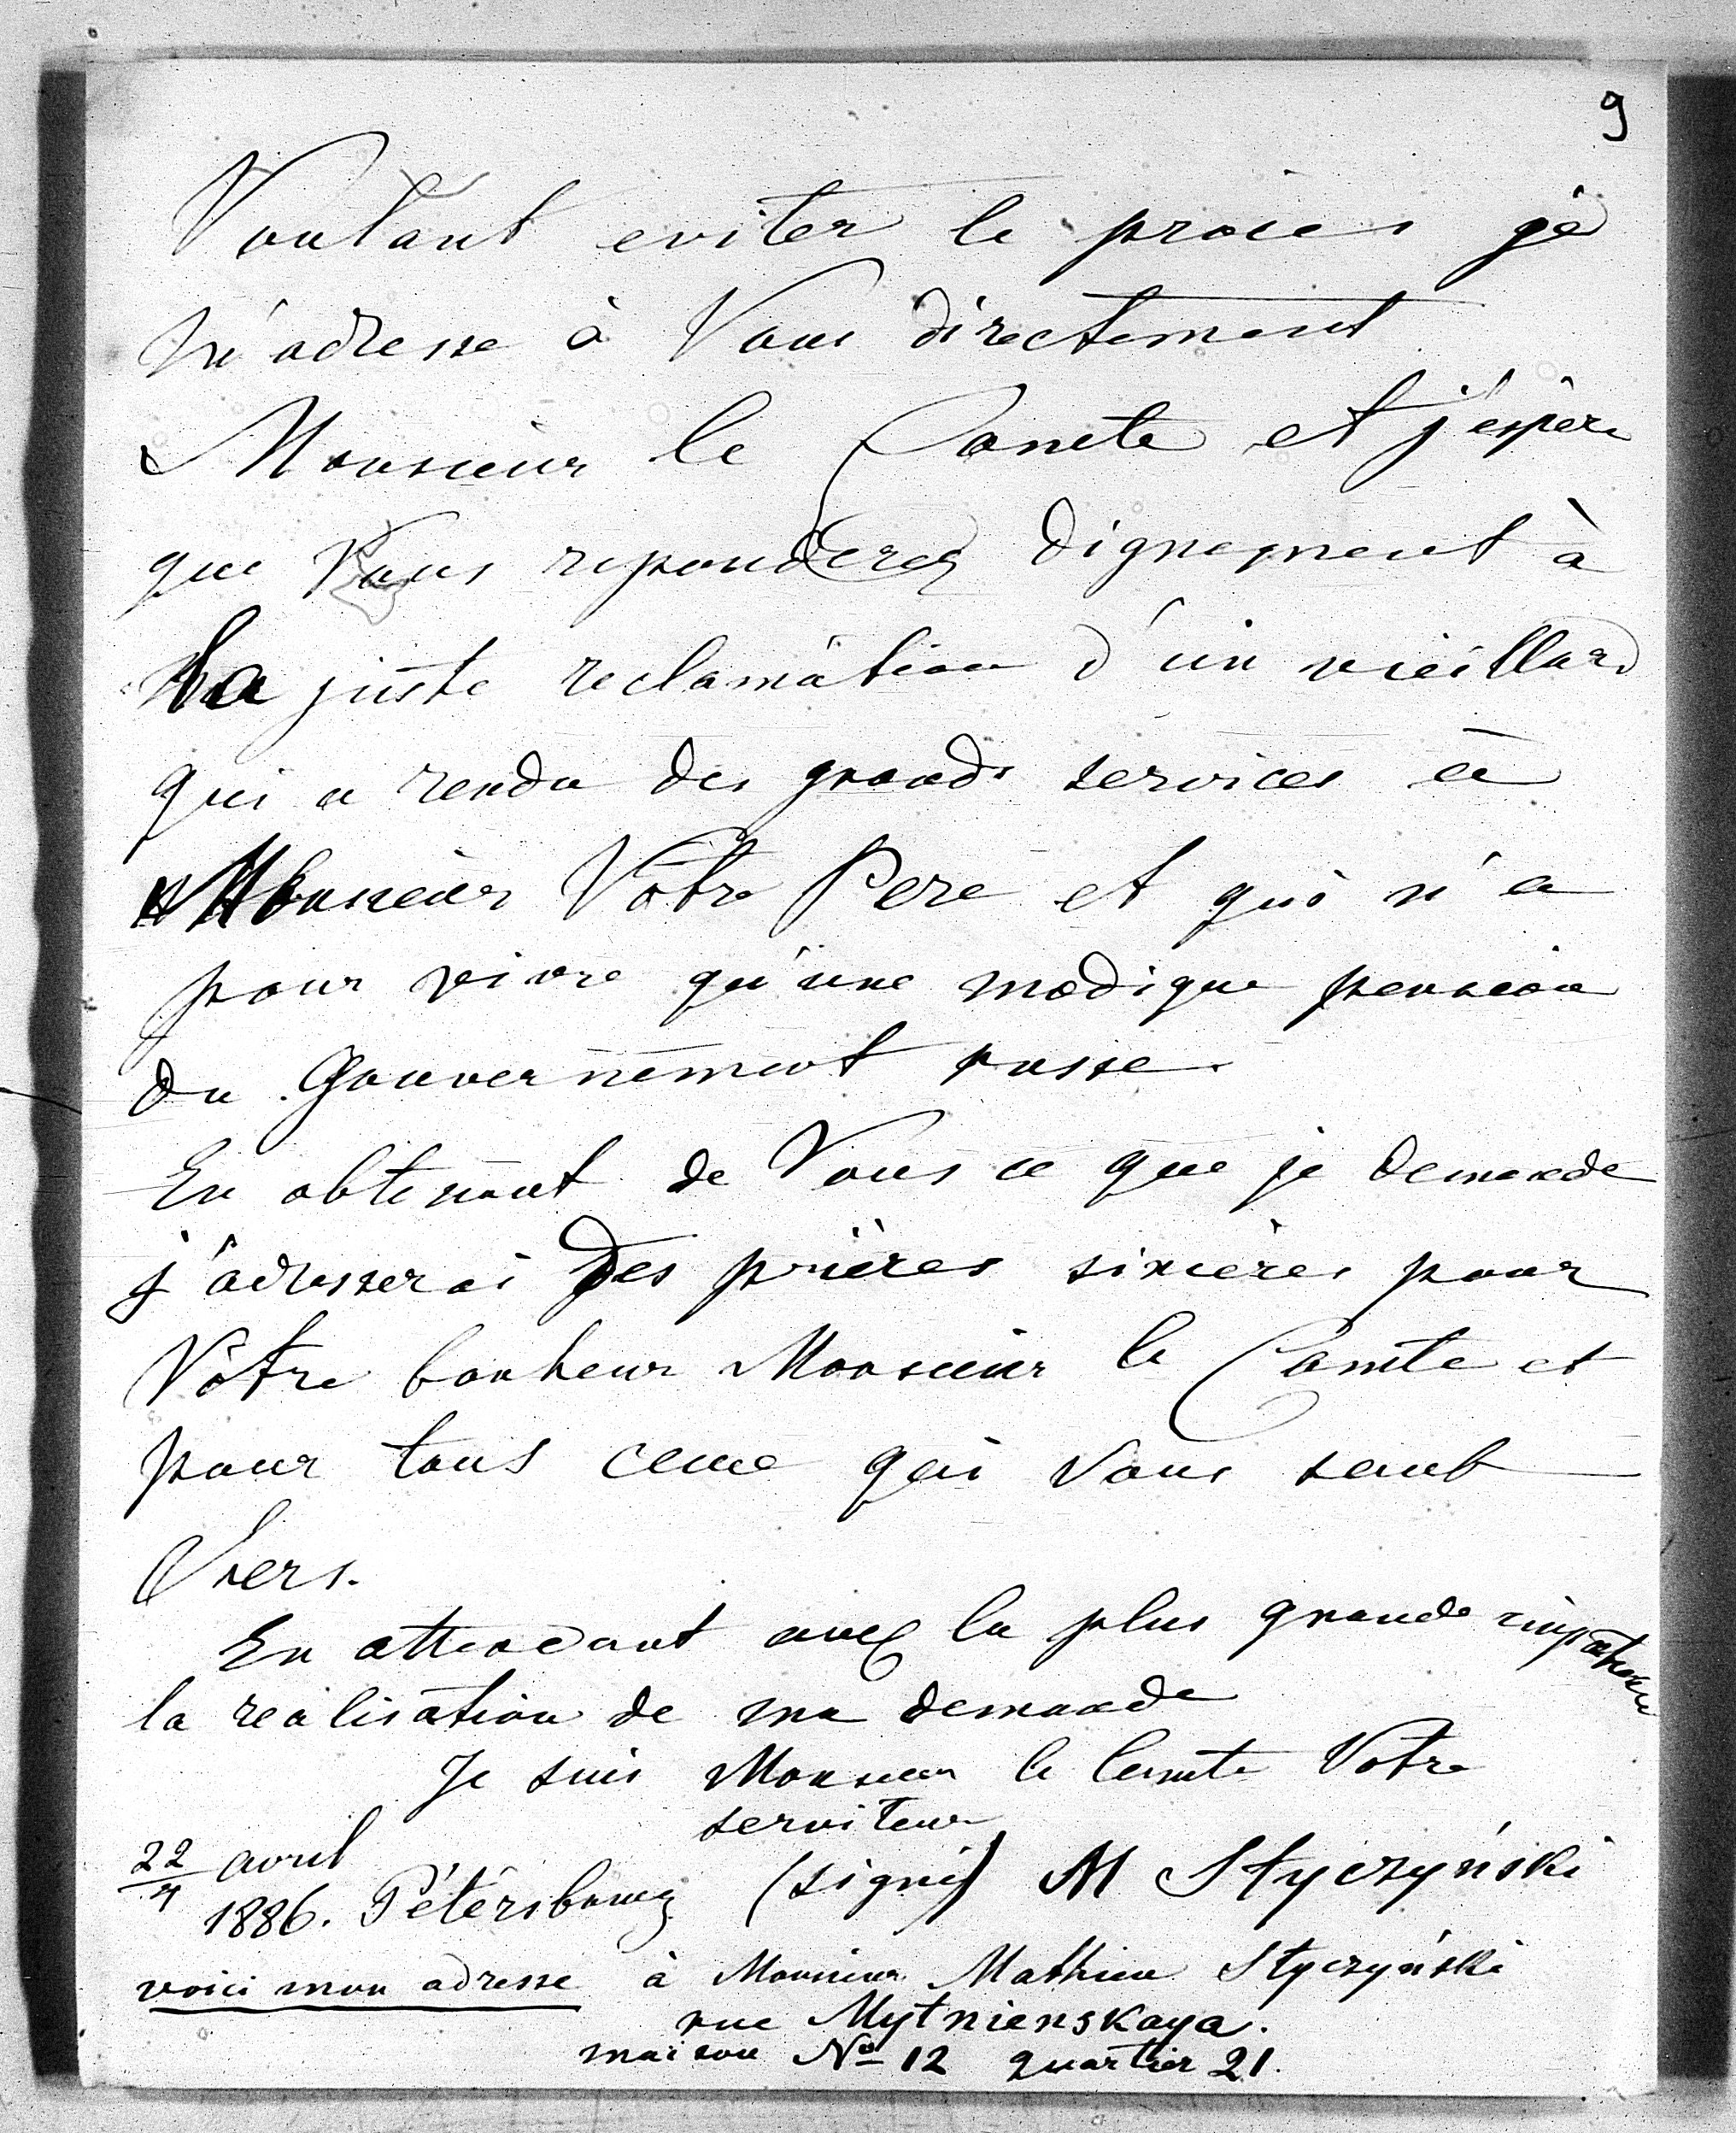 9
Voulant eviter le procès je
m'adresse à Vous directement
Monsieur le Comte et j'espère
que Vous reponderez dignement à
la juste reclamation d'un vieillard
qui a rendu des grands services à
Monsieur Votre Pere et qui n'a
pour vivre qu'une modique pension
du Gouvernement russe.
En obtenant de Vous ce que je demande
j'adresserai des prières sincères pour
Vôtre bonheur Monsieur le Comte et
pour tous ceux qui Vous sont
chers.
En attendant avec la plus grande impatience
la realisation de ma demande
Je suis Monsieur le Comte Votre
serviteur
22/4 avril
1886. Pétersbourg (signé) M Styczyński
voici mon adresse à Monsieur Mathieu Styczyński
rue Mytnienskaya.
maison No 12 quartier 21.